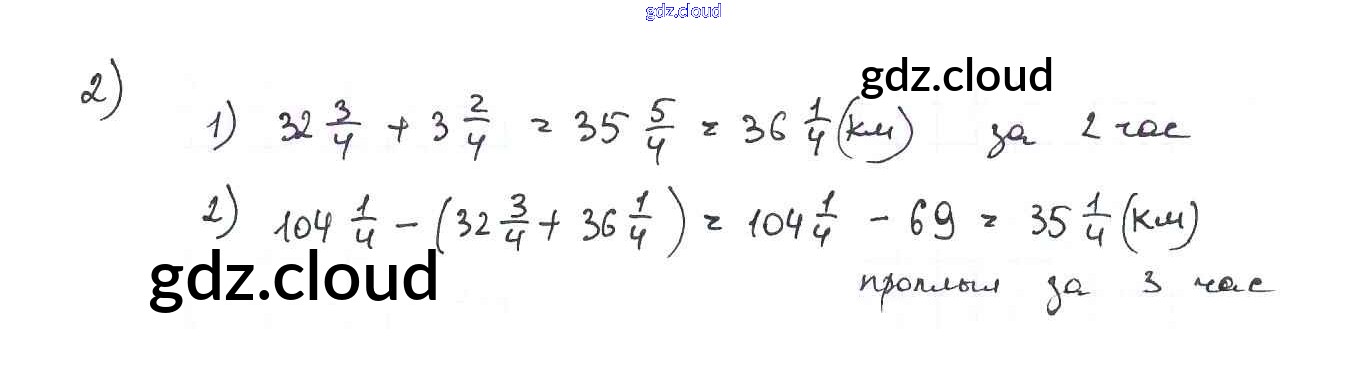 gdz.cloud
2)
gdz.cloud
1) 32 3/4 + 3 2/4 = 35 5/4 = 36 1/4 (км) за 2 час
2) 104 1/4 - (32 3/4 + 36 1/4) = 104 1/4 - 69 = 35 1/4 (км)
gdz.cloud
проплыл за 3 час